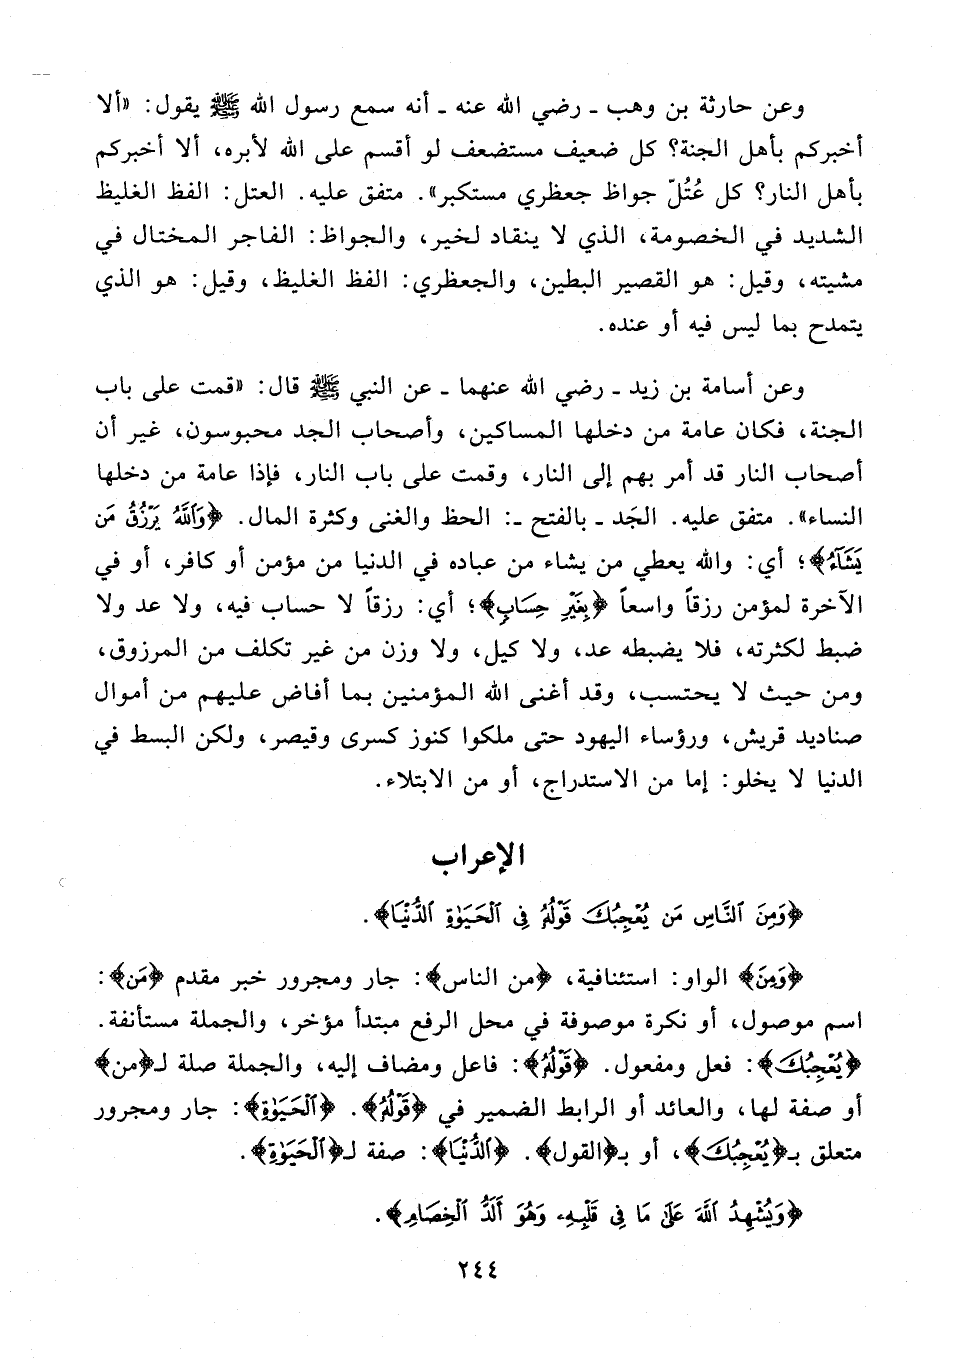 وعن حارثة بن وهب ـ رضي الله عنه ـ أنه سمع رسول الله ﷺ يقول: «ألا
أخبركم بأهل الجنة؟ كل ضعيف مستضعف لو أقسم على الله لأبره، ألا أخبركم
بأهل النار؟ كل عُتُلّ جواظ جعظري مستكبر». متفق عليه. العتل: الفظ الغليظ
الشديد في الخصومة، الذي لا ينقاد لخير، والجواظ: الفاجر المختال في
مشيته، وقيل: هو القصير البطين، والجعظري: الفظ الغليظ، وقيل: هو الذي
يتمدح بما ليس فيه أو عنده.
وعن أسامة بن زيد ـ رضي الله عنهما ـ عن النبي ﷺ قال: «قمت على باب
الجنة، فكان عامة من دخلها المساكين، وأصحاب الجد محبوسون، غير أن
أصحاب النار قد أمر بهم إلى النار، وقمت على باب النار، فإذا عامة من دخلها
النساء». متفق عليه. الجَد ـ بالفتح ـ: الحظ والغنى وكثرة المال. ﴿وَٱللَّهُ يَرْزُقُ مَن
يَشَآءُ﴾؛ أي: والله يعطي من يشاء من عباده في الدنيا من مؤمن أو كافر، أو في
الآخرة لمؤمن رزقاً واسعاً ﴿بِغَيْرِ حِسَابٍ﴾؛ أي: رزقاً لا حساب فيه، ولا عد ولا
ضبط لكثرته، فلا يضبطه عد، ولا كيل، ولا وزن من غير تكلف من المرزوق،
ومن حيث لا يحتسب، وقد أغنى الله المؤمنين بما أفاض عليهم من أموال
صناديد قريش، ورؤساء اليهود حتى ملكوا كنوز كسرى وقيصر، ولكن البسط في
الدنيا لا يخلو: إما من الاستدراج، أو من الابتلاء.
الإعراب
﴿وَمِنَ ٱلنَّاسِ مَن يُعْجِبُكَ قَوْلُهُۥ فِى ٱلْحَيَوٰةِ ٱلدُّنْيَا﴾.
﴿وَمِنَ﴾ الواو: استئنافية، ﴿من الناس﴾: جار ومجرور خبر مقدم ﴿مَن﴾:
اسم موصول، أو نكرة موصوفة في محل الرفع مبتدأ مؤخر، والجملة مستأنفة.
﴿يُعْجِبُكَ﴾: فعل ومفعول. ﴿قَوْلُهُۥ﴾: فاعل ومضاف إليه، والجملة صلة لـ﴿من﴾
أو صفة لها، والعائد أو الرابط الضمير في ﴿قَوْلُهُۥ﴾. ﴿ٱلْحَيَوٰةِ﴾: جار ومجرور
متعلق بـ﴿يُعْجِبُكَ﴾، أو بـ﴿القول﴾. ﴿ٱلدُّنْيَا﴾: صفة لـ﴿ٱلْحَيَوٰةِ﴾.
﴿وَيُشْهِدُ ٱللَّهَ عَلَىٰ مَا فِى قَلْبِهِۦ وَهُوَ أَلَدُّ ٱلْخِصَامِ﴾.
٢٤٤